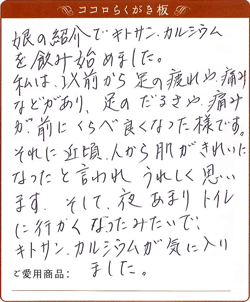 ココロらくがき板
娘の紹介でキトサン.カルシウム
を飲み始めました。
私は、以前から足の疲れや痛み
などがあり、足のだるさや痛み
が前にくらべ良くなった様です。
それに近頃、人から肌がきれいに
なったと言われ うれしく思い
ます。そして、夜あまりトイレ
に行かなくなったみたいで、
キトサン.カルシウムが気に入り
ご愛用商品: ました。